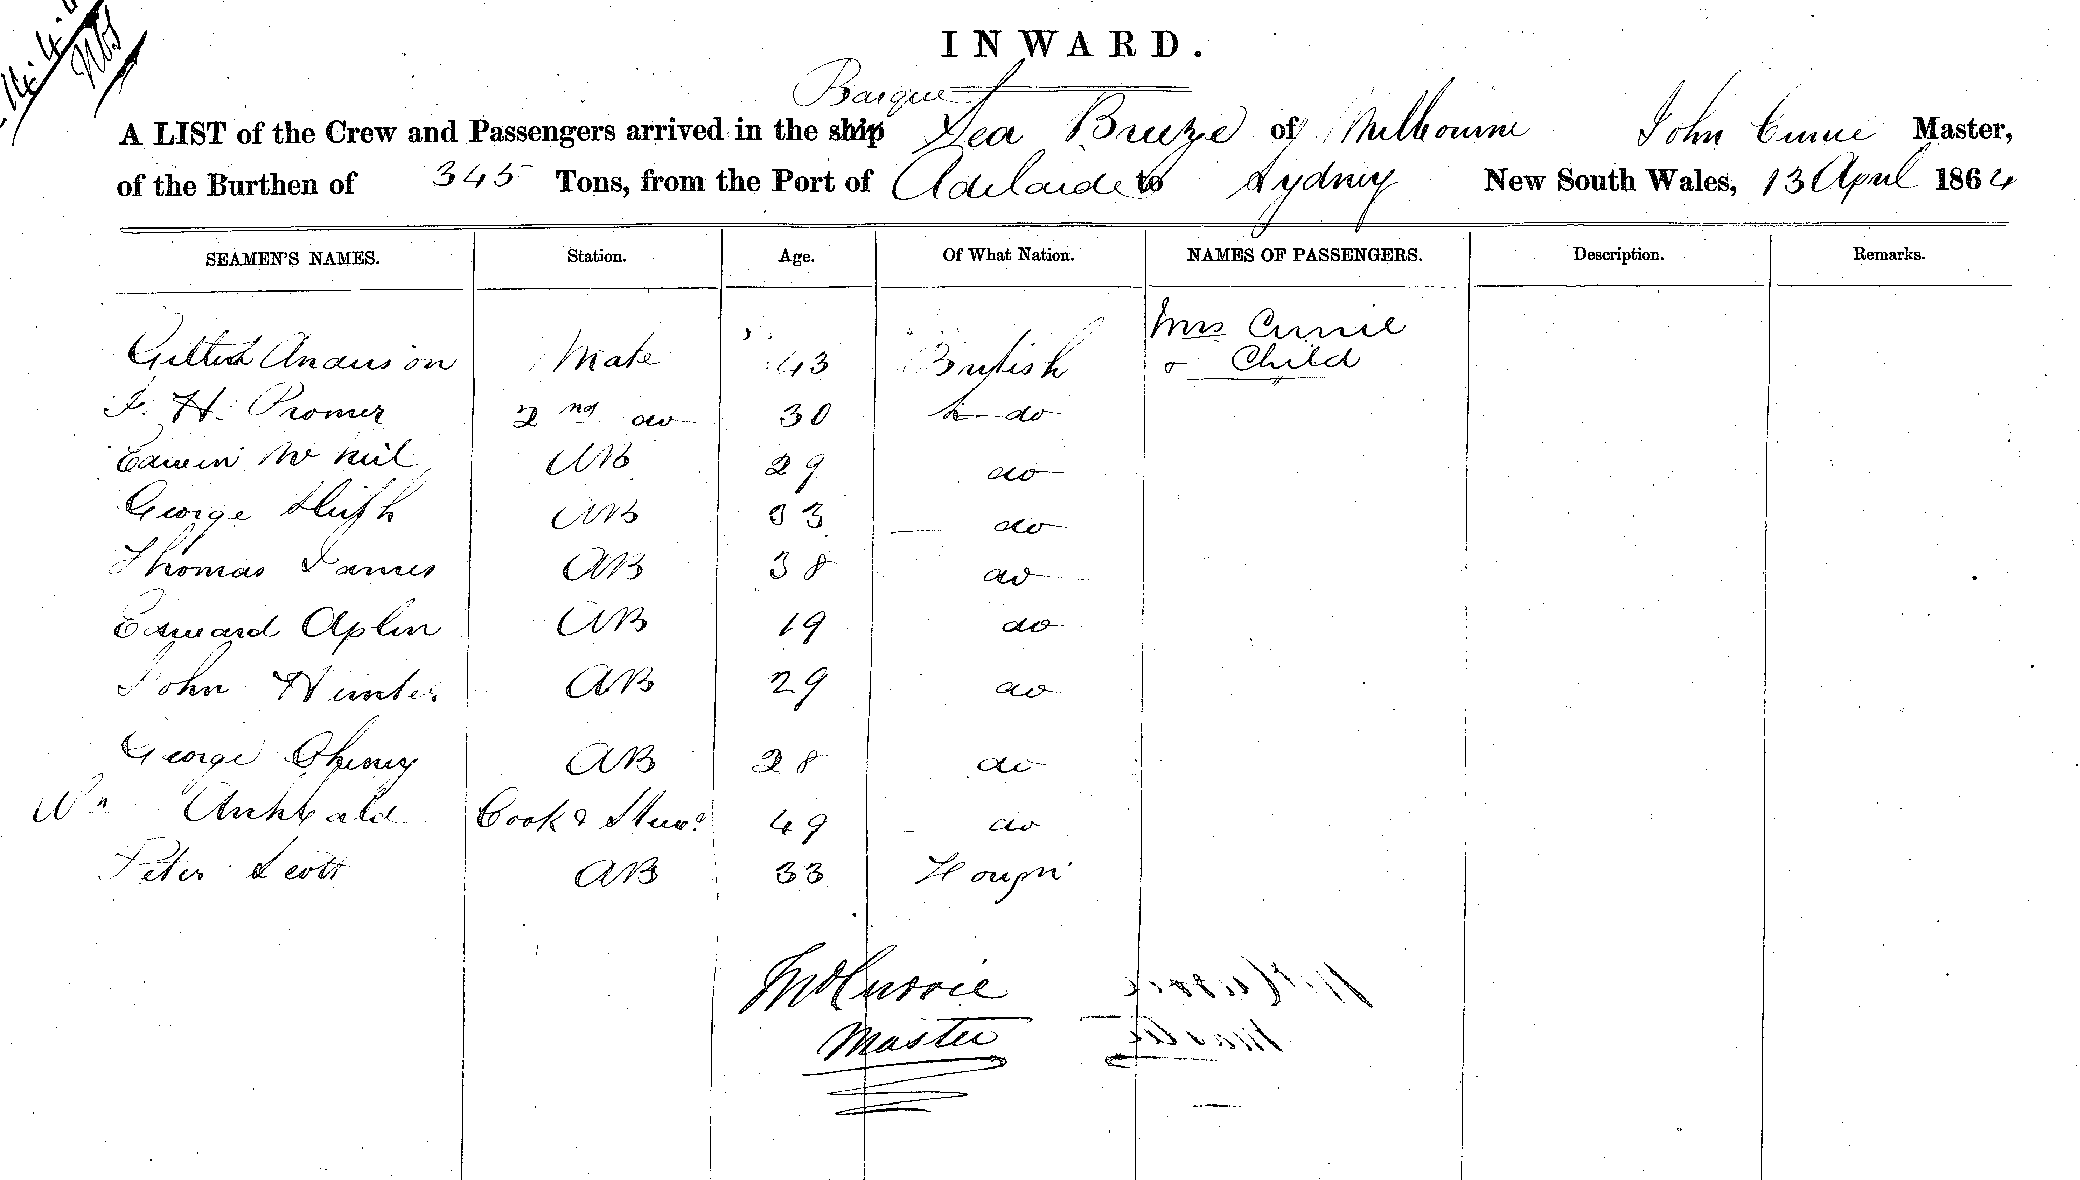 INWARD.
Barque
A LIST of the Crew and Passengers arrived in the ship Sea Breeze of Melbourne John Currie Master,
of the Burthen of 345 Tons, from the Port of Adelaide to Sydney New South Wales, 13 April 1864
SEAMEN'S NAMES. Station. Age. Of What Nation. NAMES OF PASSENGERS. Description. Remarks.
Mrs Currie
Anderson Mate 43 British & Child
H. 2nd do 30 do
Edwin McNeil AB 29 do
George AB 33 do
Thomas James AB 38 do
Edward Aplin AB 19 do
John Hunter AB 29 do
George AB 28 do
Wm Archbald Cook & Stewd 49 do
Peter Scott AB 33
Currie
Master